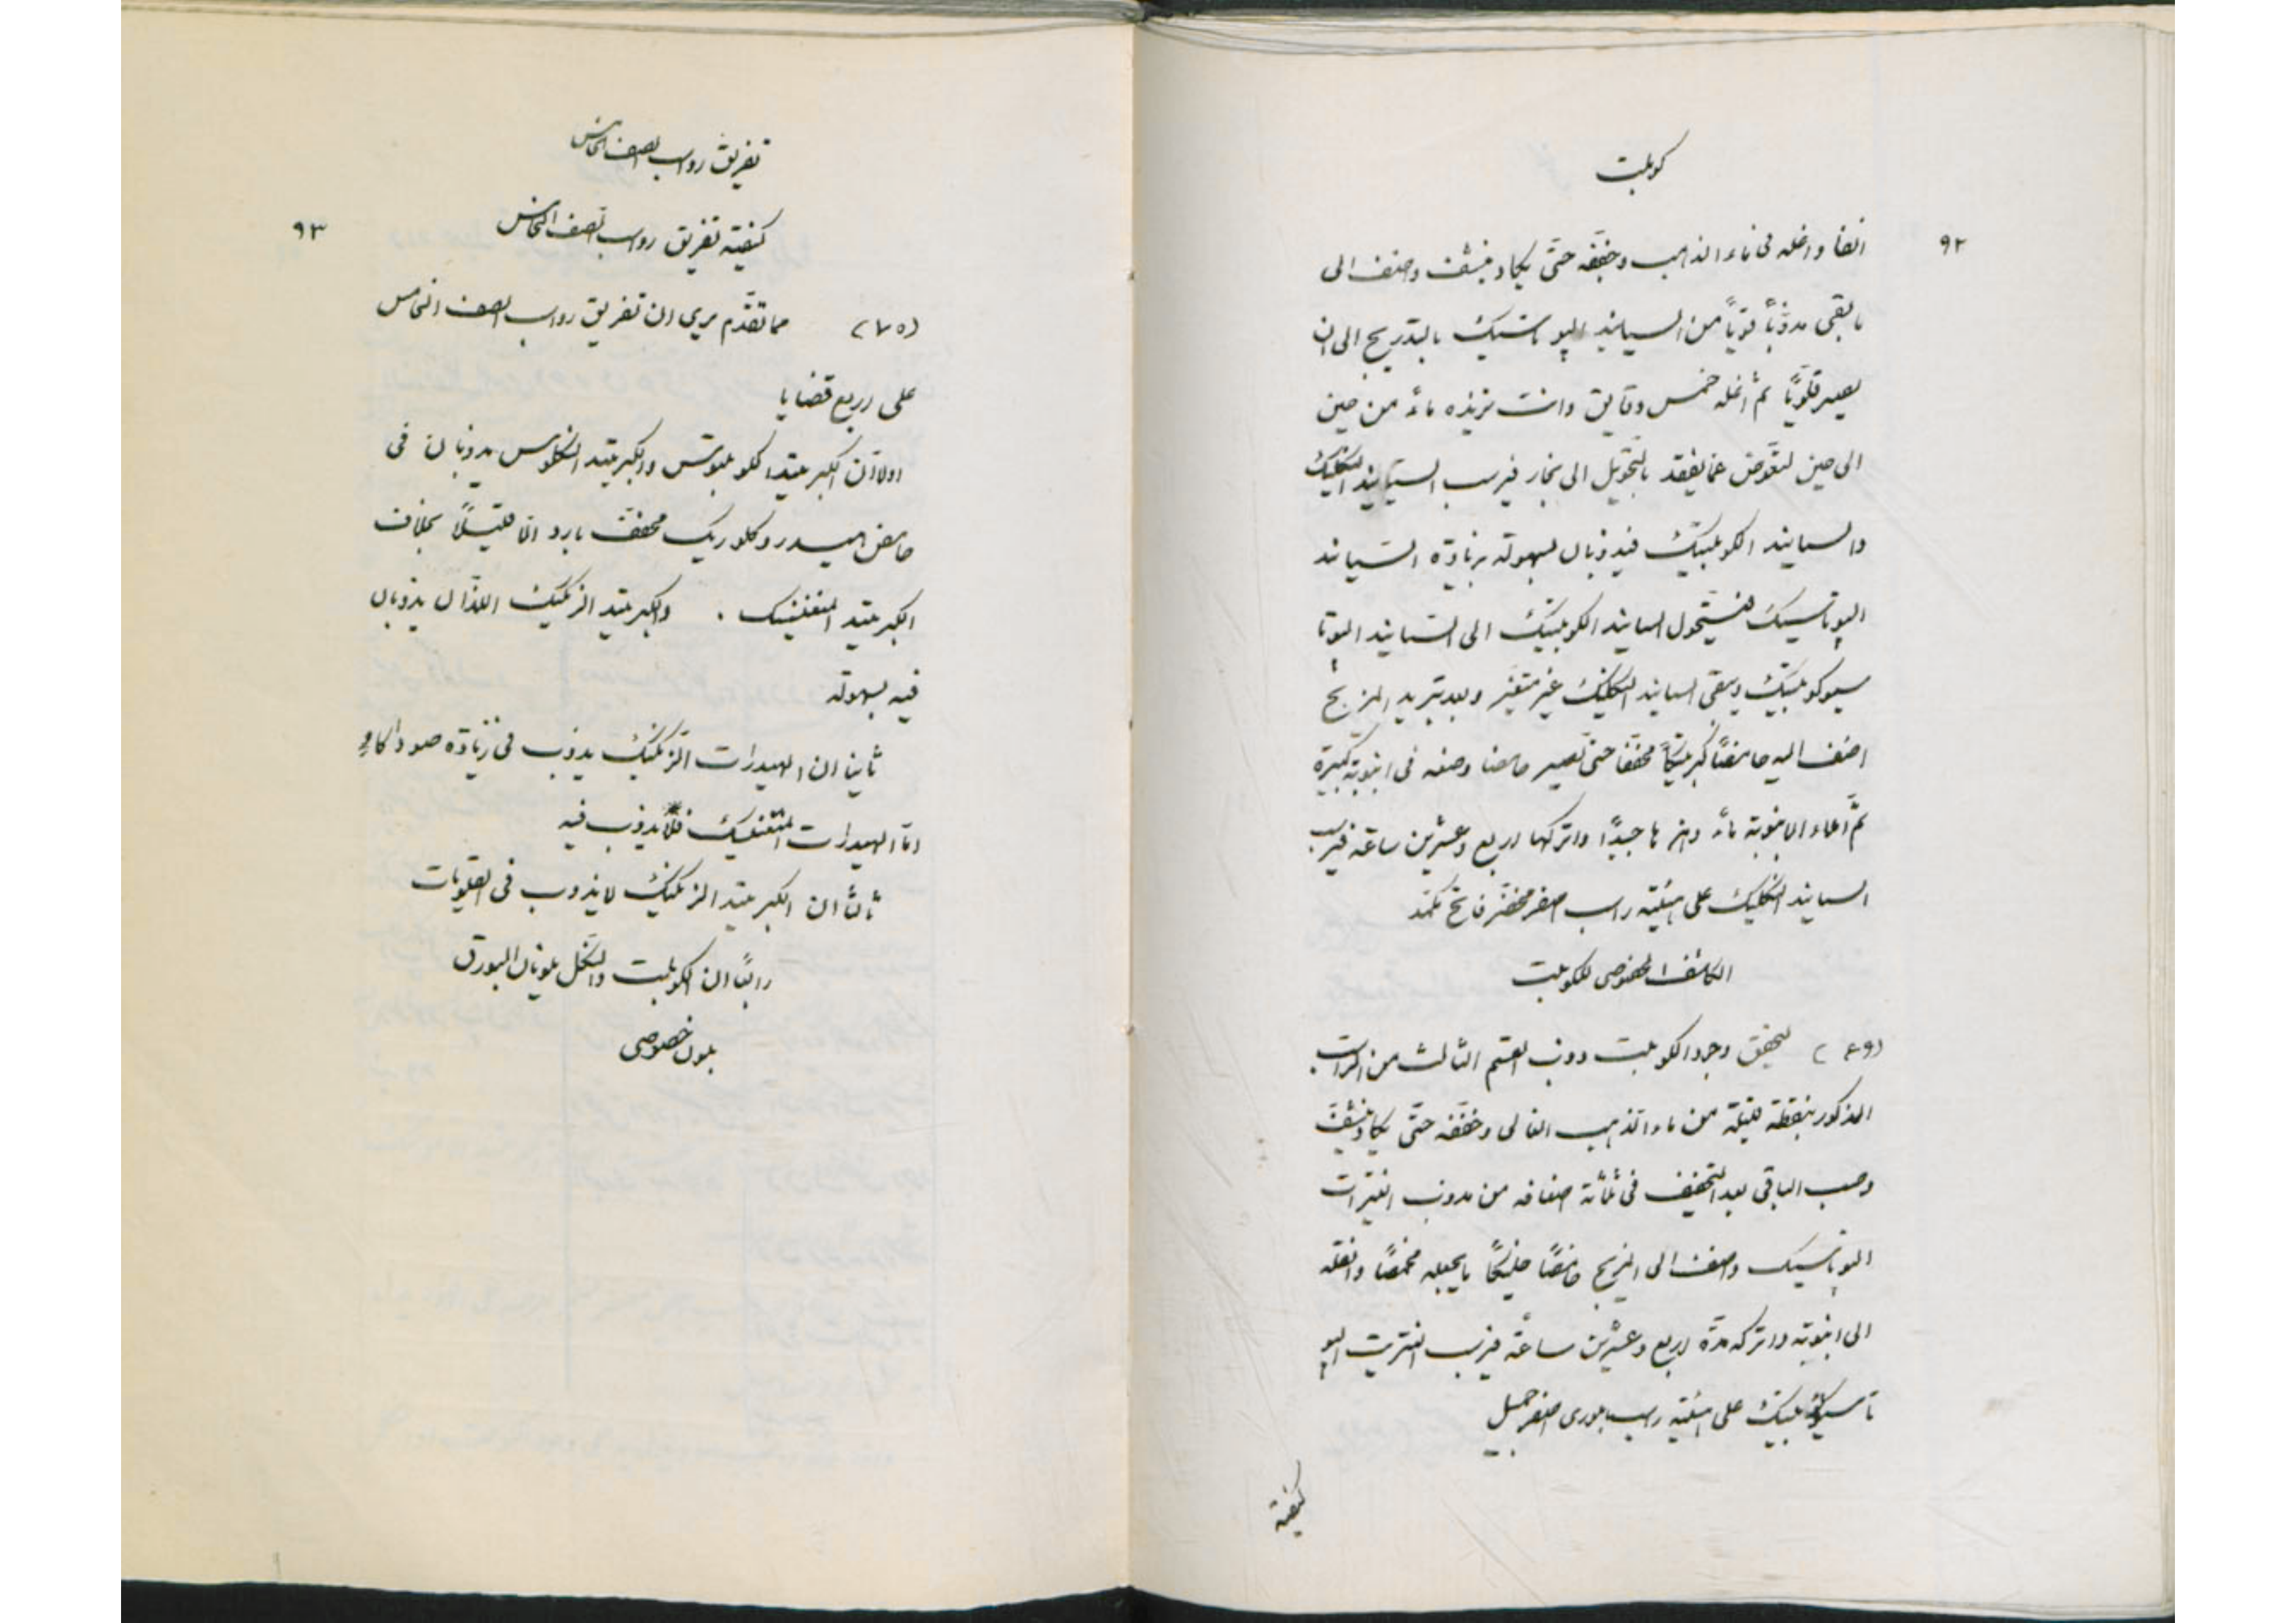 كوبلت
٩٢
ايضا واغله فى ماء الذهب وخففه حتّى يكاد ينشف واضف الى
ما بقى مذوّباً قويّاً من السيانيد الپوتاسيك بالتدريج الى ان
يصير قلويّاً ثم أغله خمس دقايق وانت تزيده ماءً من حين
الى حين لتعوّض عمّا يفقد بالتحويل الى بخار فيرسب السيانيد النكليك
والسيانيد الكوبلتيك فيذوبان بسهولة بزيادة السيانيد
الپوتاسيك فيستحول السيانيد الكوبلتيك الى السيانيد الپوتا
سيوكوبلتيك ويبقى السيانيد النكليك غير متغيّر وبعد تبريد المزيج
اضف اليه حامضاً كبريتيكاً مخففا حتى يصير حامضا وضعه فى انبوبة كبيرة
ثمّ املاء الانبوبة ماءً وهزها جيّداً واتركها اربع وعشرين ساعة فيرسب
السيانيد النكليك على هيئة راسب اصفر مخضّر فاتح مكمّد
الكاشف الخصوصى للكوبلت
(٦٩) لتحقق وجود الكوبلت ذوب القسم الثالث من الراسب
المذكور بنقطة قليلة من ماء الذهب الغالى وخففه حتّى يكاد ينشف
وصب الباقى بعد التخفيف فى ثلثة اضعافه من مذوب النيترات
الپوتاسيك واضف الى المزيج حامضاً خليكاً ما يجعله محمضاً وانقله
الى انبوبة واتركه مدّة اربع وعشرين ساعة فيرسب النتريت الپو
تاسيوكوبلتيك على هيئة راسب بلورى اصفر جميل
كيفية
تفريق رواسب الصف الخامس
٩٣
كيفية تفريق رواسب الصف الخامس
(٧٥) مما تقدّم يرى ان تفريق رواسب الصف الخامس
على اربع قضايا
اولا ان الكبريتيد الكوبلتوس والكبريتيد النكلوس يذوبان فى
حامض هيدروكلوريك مخفف بارد الّا قليلاً بخلاف
الكبريتيد المنغنيسك . والكبريتيد الزنكيك اللذان يذوبان
فيه بسهولة
ثانيا ان الهيدرات الزنكيك يذوب فى زيادة صودا كاو
امّا الهيدرات المنغنيك فلا يذوب فيه
ثالثا ان الكبريتيد الزنكيك لا يذوب فى القلويات
رابعا ان الكوبلت والنكل يلونان البورق
بلون خصوصى